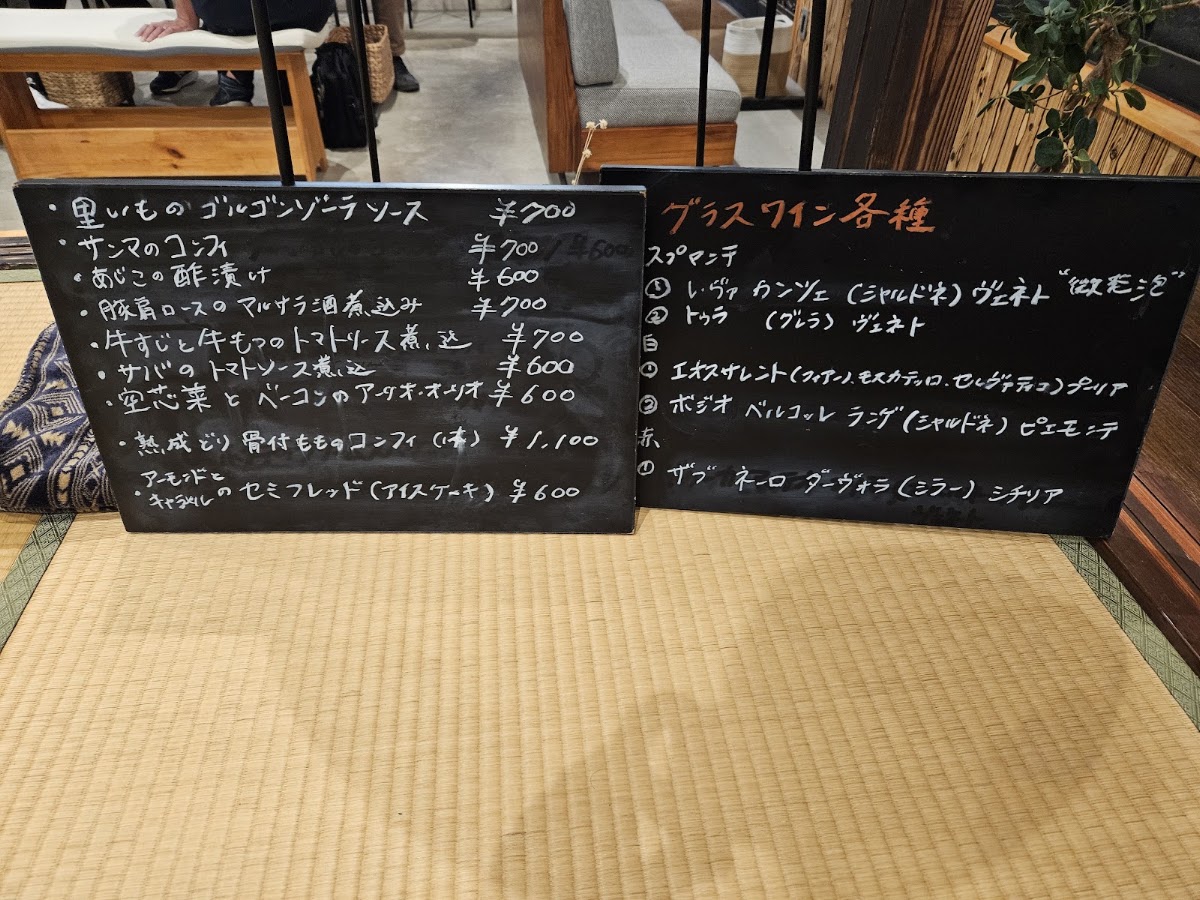 ・里いものゴルゴンゾーラソース ¥700
・サンマのコンフィ ¥700
・あじこの酢漬け ¥600
・豚肩ロースのマルサラ酒煮込み ¥700
・牛すじと牛もつのトマトソース煮込 ¥700
・サバのトマトソース煮込 ¥600
・空芯菜とベーコンのアーリオ・オーリオ ¥600
・熟成どり骨付もものコンフィ(1本) ¥1,100
・アーモンドと
キャラメルのセミフレッド(アイスケーキ) ¥600
グラスワイン各種
スプマンテ
① レ・ヴァ カンツェ (シャルドネ) ヴェネト "微発泡"
② トゥラ (グレラ) ヴェネト
白
① エオス サレント (フィアーノ、モスカテッロ・セルヴァティコ) プーリア
② ボジオ ベルコッレ ランゲ (シャルドネ) ピエモンテ
赤
① ザブ ネーロ ダーヴォラ (シラー) シチリア